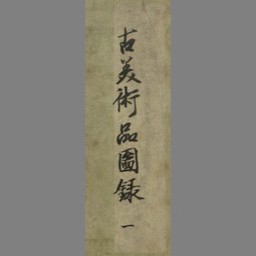 古美術品圖録 一